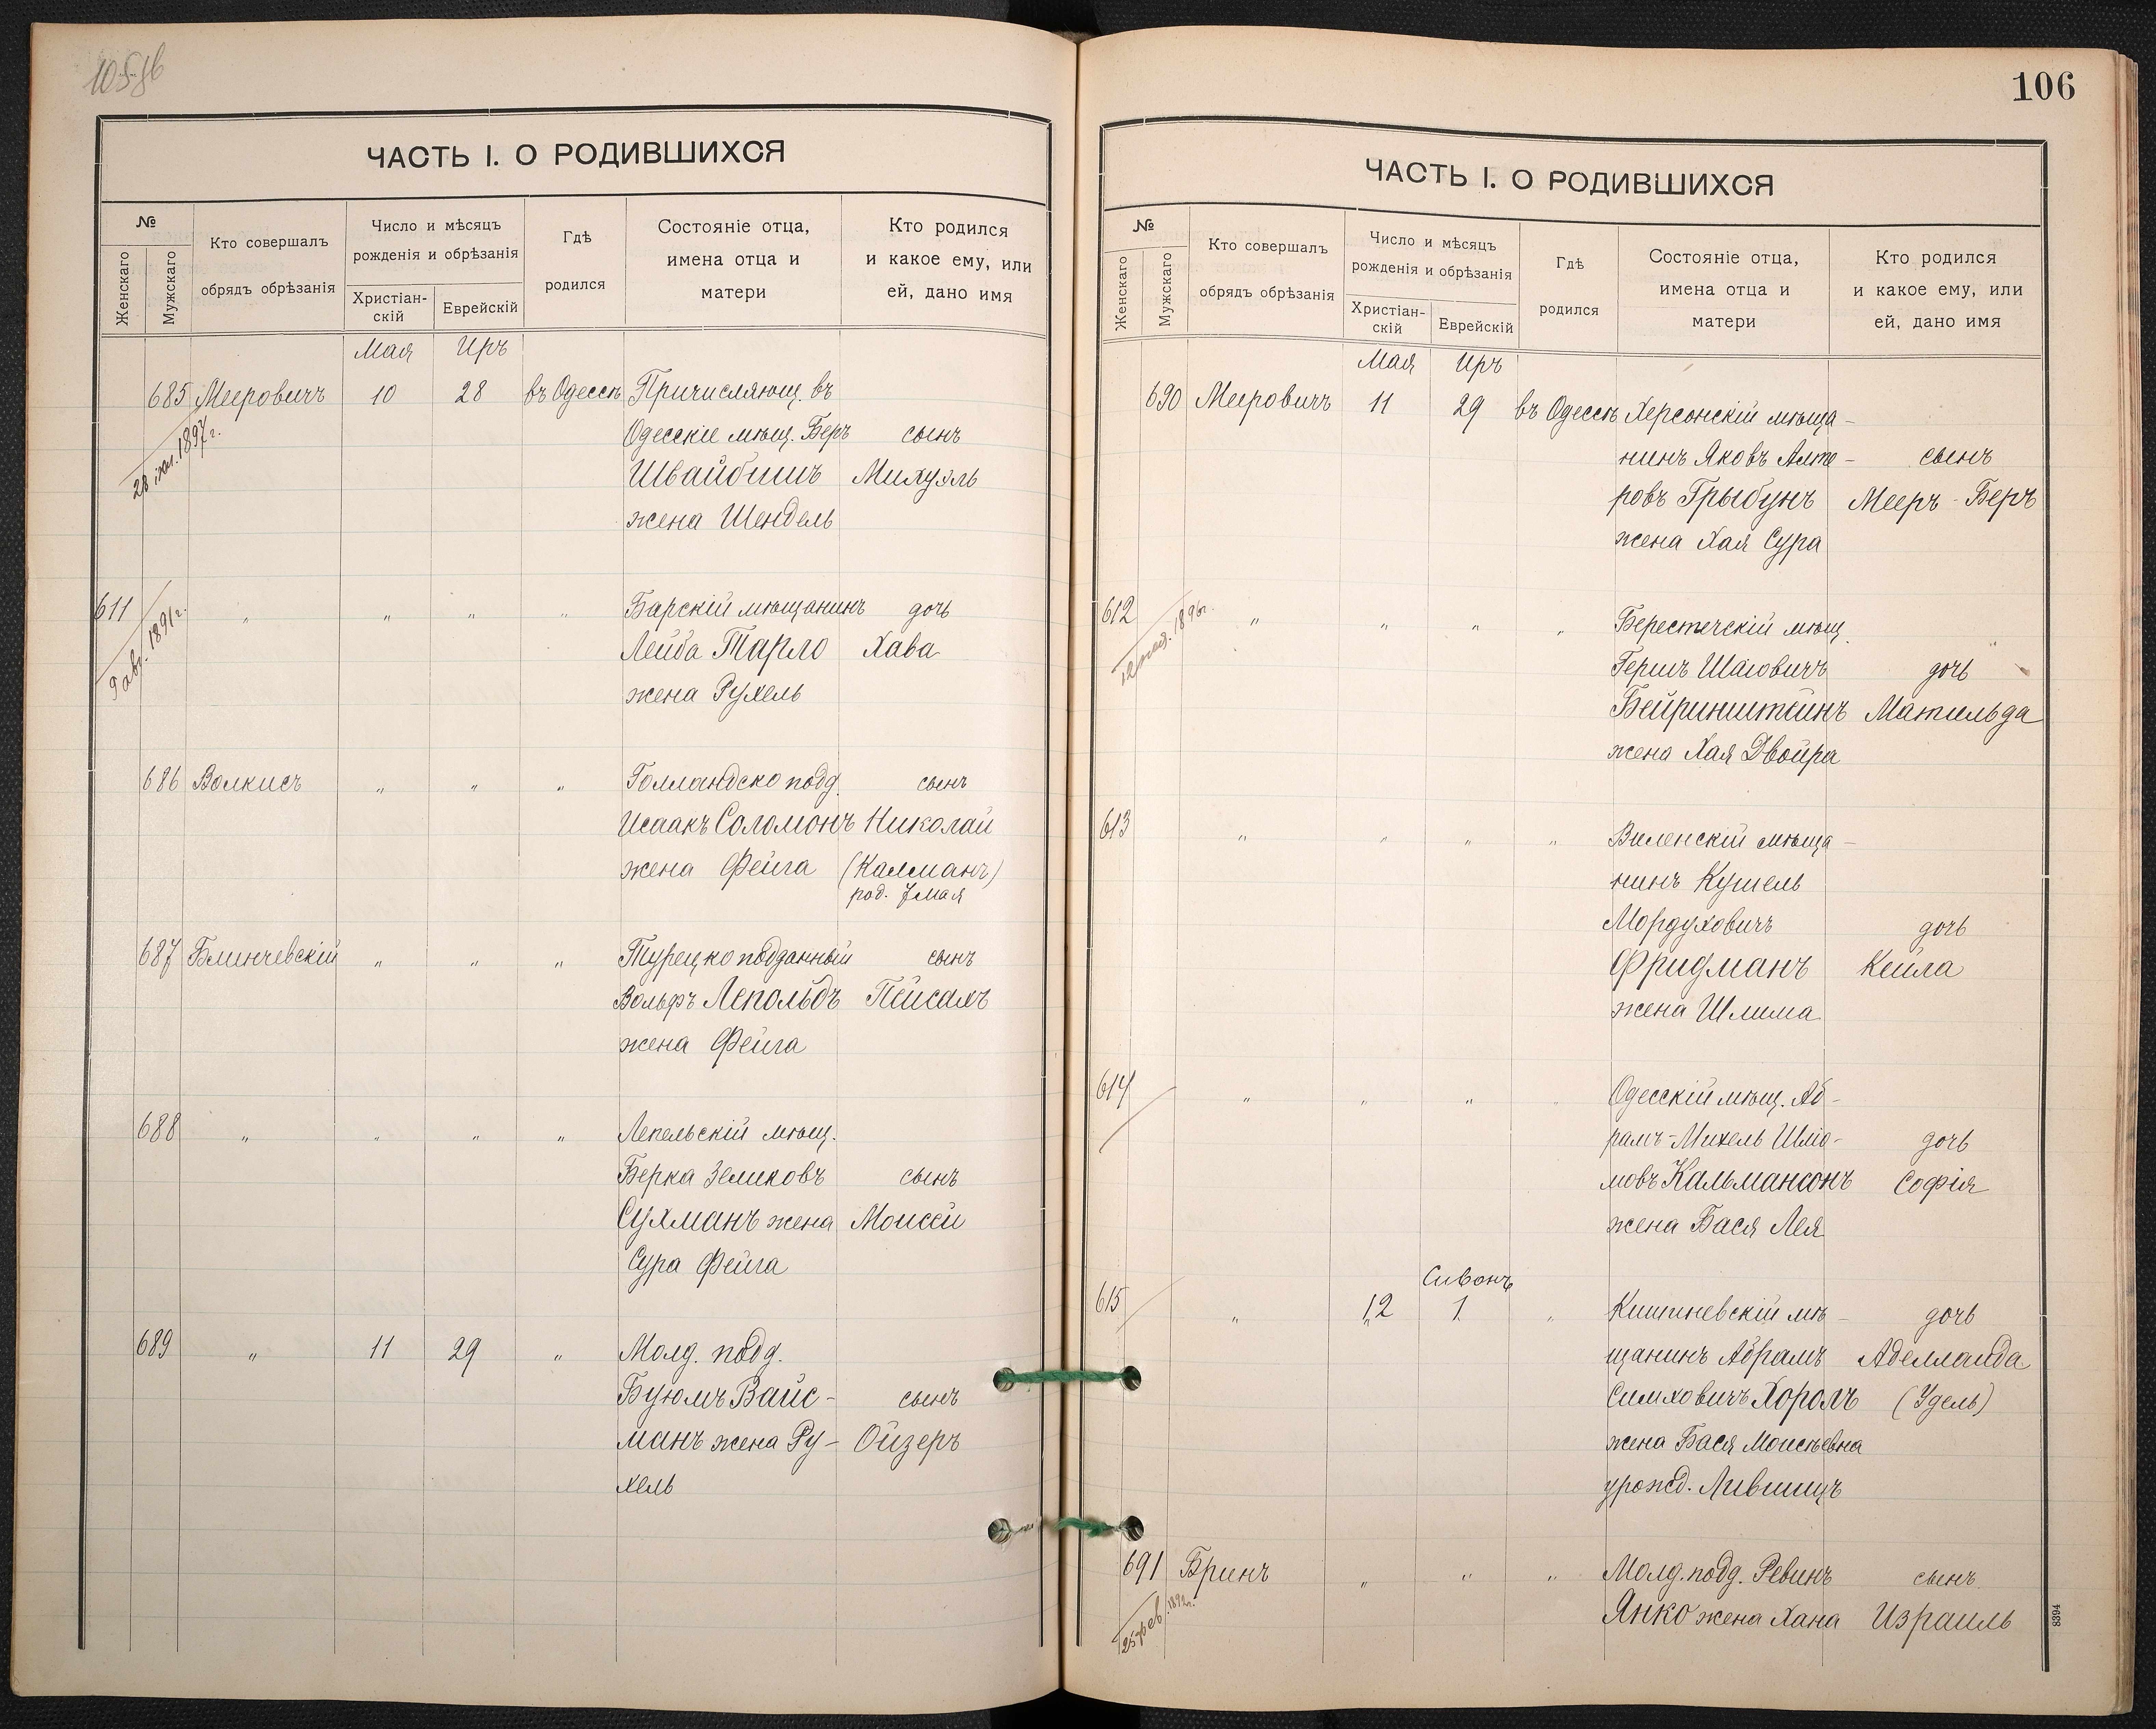 ЧАСТЬ I. О РОДИВШИХСЯ
№
Женскаго
Мужскаго
Кто совершалъ
обрядъ обрѣзанія
Число и мѣсяцъ
рожденія и обрѣзанія
Христіан-
скій
Еврейскій
Гдѣ
родился
Состояніе отца,
имена отца и
матери
Кто родился
и какое ему, или
ей, дано имя
Мая Иръ
685 Мееровичъ 10 28 въ Одессѣ Причисляющ. въ
28 1897 г.
Одесскіе мѣщ. Беръ сынъ
Швайбишъ Михуэль
жена Шендель
611 " " " " Барскій мѣщанинъ дочь
9 авг. 1891 г.
Лейба Тарло Хава
жена Рухель
686 Волкисъ " " " Голландско подд. сынъ
Исаакъ Соломонъ Николай
жена Фейга (Калманъ)
род. 7 мая
687 Блинчевскій " " " Турецко подданный сынъ
Вольфъ Лепольдъ Пейсахъ
жена Фейга
688 " " " " Лепельскій мѣщ.
Берка Зеликовъ сынъ
Сухманъ жена Моисей
Сура Фейга
689 " 11 29 " Молд. подд.
Буюмъ Вайс- сынъ
манъ жена Ру- Ойзеръ
хель
106
ЧАСТЬ I. О РОДИВШИХСЯ
№
Женскаго
Мужскаго
Кто совершалъ
обрядъ обрѣзанія
Число и мѣсяцъ
рожденія и обрѣзанія
Христіан-
скій
Еврейскій
Гдѣ
родился
Состояніе отца,
имена отца и
матери
Кто родился
и какое ему, или
ей, дано имя
Мая Иръ
690 Мееровичъ 11 29 въ Одессѣ Херсонскій мѣща-
нинъ Яковъ Алте- сынъ
ровъ Грыбунъ Мееръ-Беръ
жена Хая Сура
612 " " " " Берестечскій мѣщ.
12 1896 г.
Гершъ Шаговичъ дочь
Бейринштейнъ Матильда
жена Хая Двойра
613 " " " " Виленскій мѣща-
нинъ Кушель
Мордуховичъ дочь
Фридманъ Кейла
жена Шлима
614 " " " " Одесскій мѣщ. Аб-
рамъ-Михель Шліо- дочь
мовъ Кальмансонъ Софія
жена Бася Лея
Сивонъ
615 " 12 1 " Кишиневскій мѣ- дочь
щанинъ Абрамъ Аделлаида
Симховичъ Хоролъ (Удель)
жена Бася Моисѣевна
урожд. Лившицъ
691 Бринъ " " " Молд. подд. Ревинъ сынъ
25 фев. 1892 г.
Янко жена Хана Израиль
8394